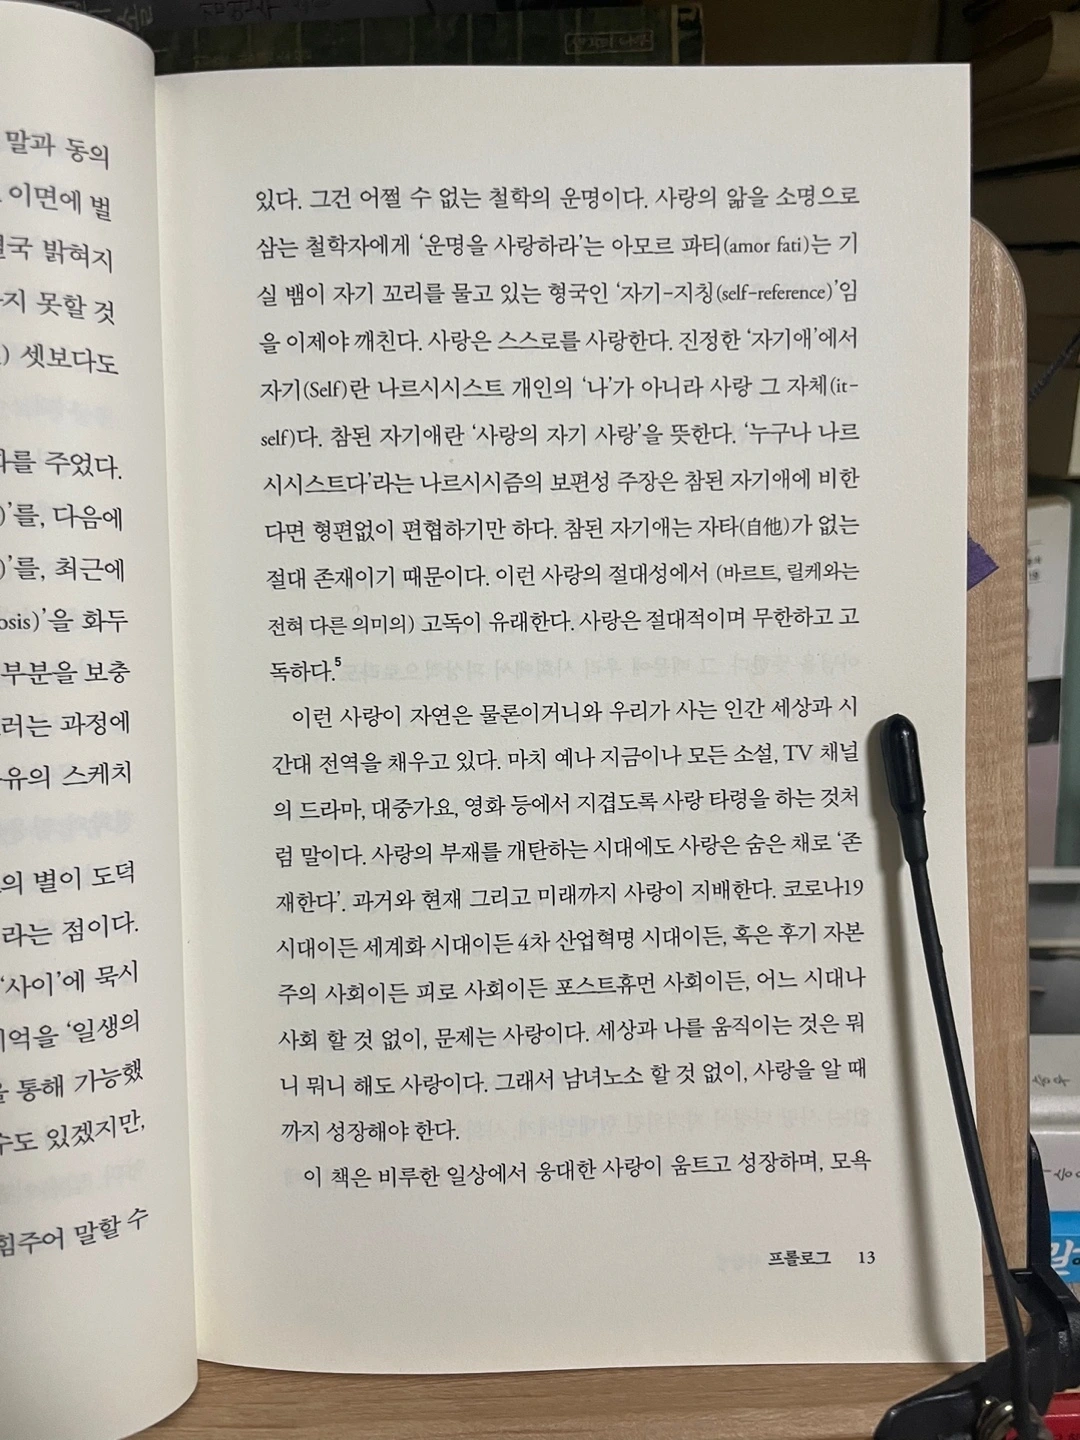 말과 동의
이면에 벌
밝혀지
못할 것
셋보다도
주었다.
다음에
최근에
화두
부분을 보충
과정에
스케치
별이 도덕
라는 점이다.
‘사이’에 묵시
‘일생의
통해 가능했
있겠지만,
힘주어 말할 수
있다. 그건 어쩔 수 없는 철학의 운명이다. 사랑의 앎을 소명으로
삼는 철학자에게 ‘운명을 사랑하라’는 아모르 파티(amor fati)는 기
실 뱀이 자기 꼬리를 물고 있는 형국인 ‘자기-지칭(self-reference)’임
을 이제야 깨친다. 사랑은 스스로를 사랑한다. 진정한 ‘자기애’에서
자기(Self)란 나르시시스트 개인의 ‘나’가 아니라 사랑 그 자체(it-
self)다. 참된 자기애란 ‘사랑의 자기 사랑’을 뜻한다. ‘누구나 나르
시시스트다’라는 나르시시즘의 보편성 주장은 참된 자기애에 비한
다면 형편없이 편협하기만 하다. 참된 자기애는 자타(自他)가 없는
절대 존재이기 때문이다. 이런 사랑의 절대성에서 (바르트, 릴케와는
전혀 다른 의미의) 고독이 유래한다. 사랑은 절대적이며 무한하고 고
독하다.5
이런 사랑이 자연은 물론이거니와 우리가 사는 인간 세상과 시
간대 전역을 채우고 있다. 마치 예나 지금이나 모든 소설, TV 채널
의 드라마, 대중가요, 영화 등에서 지겹도록 사랑 타령을 하는 것처
럼 말이다. 사랑의 부재를 개탄하는 시대에도 사랑은 숨은 채로 ‘존
재한다’. 과거와 현재 그리고 미래까지 사랑이 지배한다. 코로나19
시대이든 세계화 시대이든 4차 산업혁명 시대이든, 혹은 후기 자본
주의 사회이든 피로 사회이든 포스트휴먼 사회이든, 어느 시대나
사회 할 것 없이, 문제는 사랑이다. 세상과 나를 움직이는 것은 뭐
니 뭐니 해도 사랑이다. 그래서 남녀노소 할 것 없이, 사랑을 알 때
까지 성장해야 한다.
이 책은 비루한 일상에서 웅대한 사랑이 움트고 성장하며, 모욕
프롤로그 13